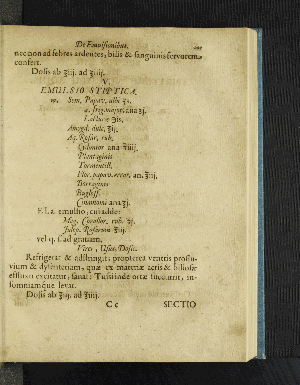 De Emulsionibus.
nec non ad febres ardentes, bilis & sanguinis fervorem
confert.
Dosis ab ʒiij. ad ʒiiij.
V.
EMULSIO STIPTICA.
℞. Sem. Papav. albi ʒj.
4. frig. major. ana ʒj.
Lactucæ ʒis.
Amygd. dulc. ʒij.
Aq. Rosar. rub.
Cydonior. ana ʒiiij.
Plantaginis
Tormentill.
Flor. papav. errat. an. ʒiij.
Borraginis
Bugloss.
Cinamomi ana ʒj.
F. l. a. emulsio, cui adde:
Mag. Corallor. rub. ʒj.
Julep. Rosarum ʒiij.
vel q. s. ad gratiam.
Vires, Usus, Dosis.
Refrigerat & adstringit; propterea ventris proflu-
vium & dysenteriam, quæ ex materiæ acris & biliosæ
effluxu excitatur, sanat: Tussi inde ortæ succurrit, in-
somniamque levat.
Dosis ab ʒiij. ad ʒiiij.
Cc SECTIO